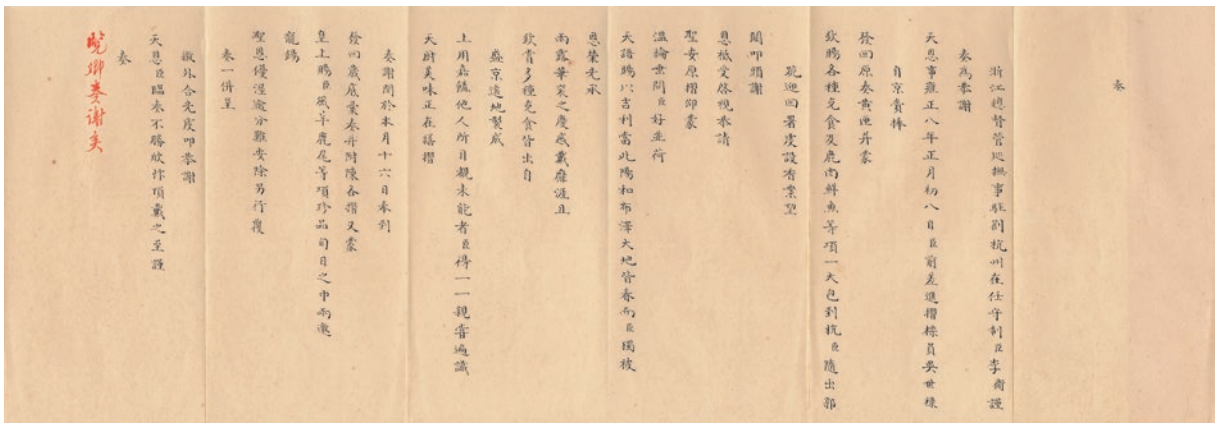 奏
浙江總督管巡撫事駐劄杭州在任守制臣李衛謹
奏為恭謝
天恩事雍正八年正月初八日臣前差進摺標員吳世標
自京賫捧
發回原奏黃匣并蒙
欽賜各種克食及鹿肉鮮魚等項一大包到杭臣隨出郭
跪迎回署虔設香案望
闕叩頭謝
恩祗受啓視恭請
聖安原摺仰蒙
溫綸垂問臣好並荷
天語賜以吉利當此陽和布澤大地皆春而臣獨被
恩榮先承
雨露華菜之慶感戴靡涯且
欽賫多種克食皆出自
盛京遠地製成
上用嘉饈他人所目覩未能者臣得一一親嘗遍識
天厨美味正在繕摺
奏謝間於本月十六日奉到
發回歲底彙奏并附陳各摺又蒙
皇上賜臣風羊鹿尾等項珍品旬日之中兩邀
寵錫
聖恩優渥逾分難安除另行覆
奏一併呈
繳外合先虔叩恭謝
天恩臣臨奏不勝欣忭頂戴之至謹
奏
覽卿奏謝矣